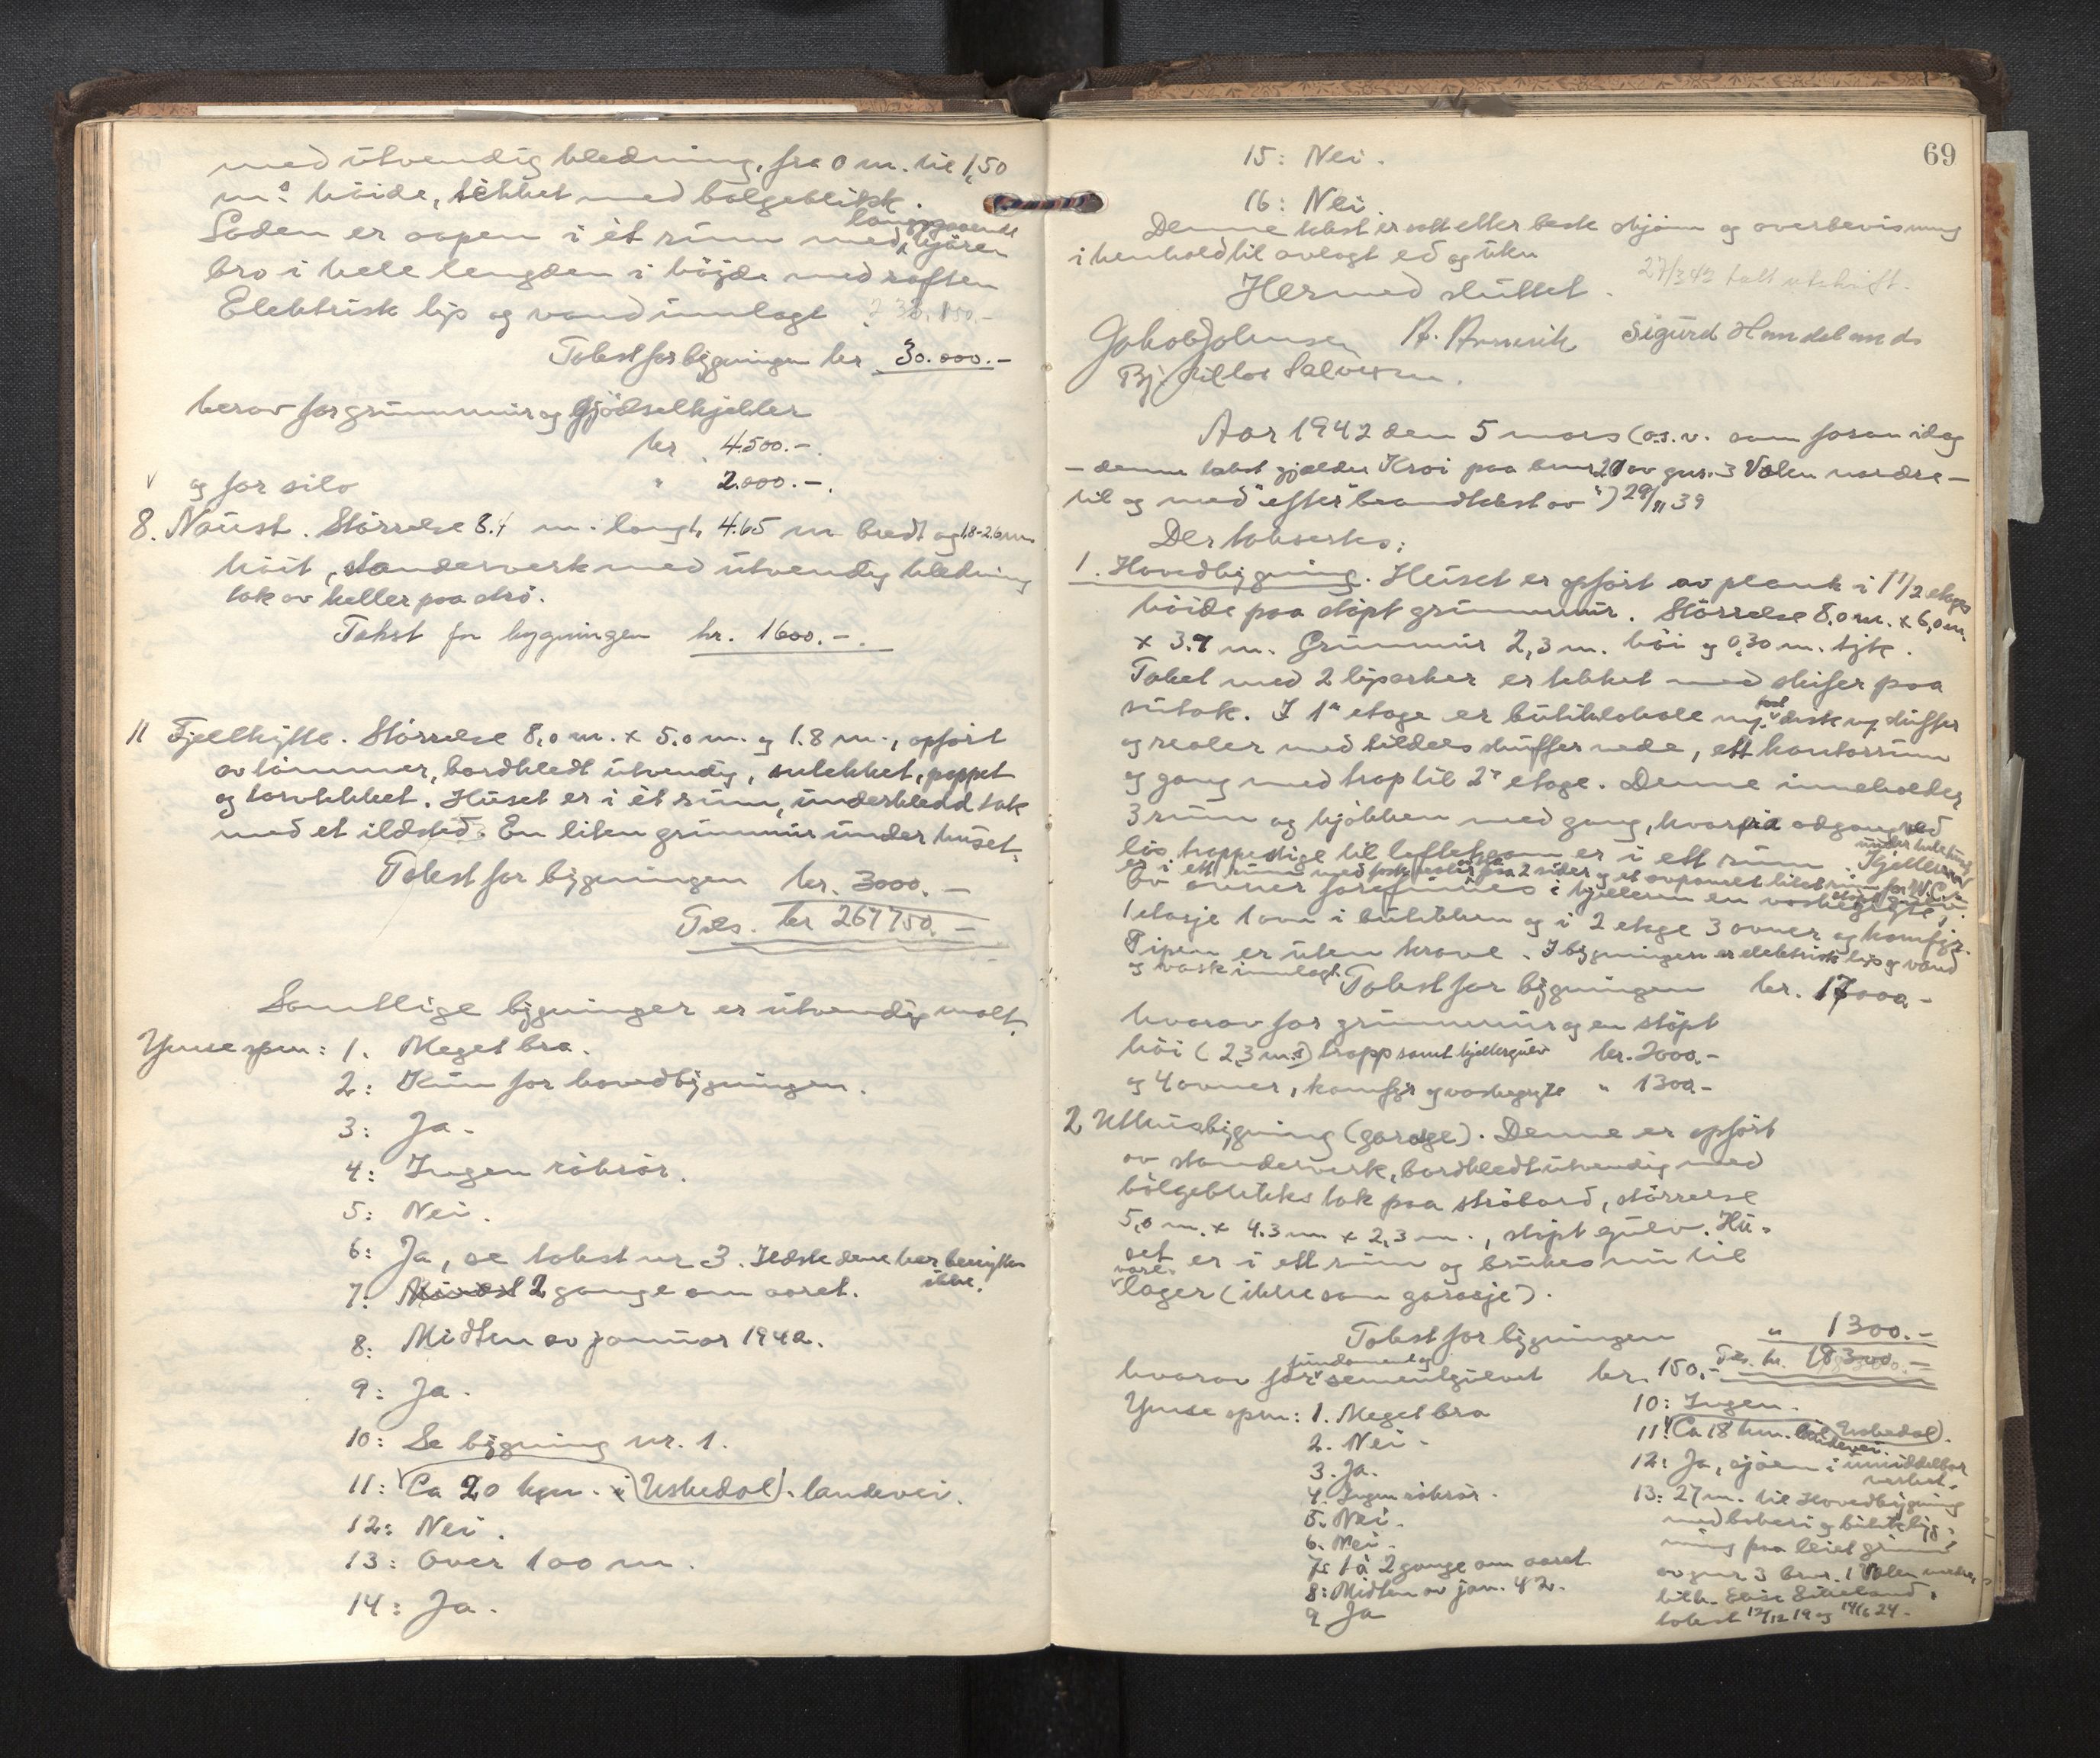 med utvendig kledning, fra 0 m. til 1,50
m.s höide, tekket med bölgeblikk.
Laden er aapen i ét rum med langsgaaende kjöre
bro i hele lengden i höide med raften
Elektrisk lys og vand innlagt
Takst for bygningen kr 30.000.-
herav for grunnmur og gjödselkjelder
kr 4500.-
og for silo " 2.000.-
8. Naust. Störrelse 8.4 m. langt, 4.65 m bredt og 1.8-2.6 m.
höit, standerverk med utvendig kledning
tak av heller paa strö.
Takst for bygningen kr. 1600.-
11 Fjellhytte. Störrelse 8,0 m. x 5.0 m. og 1.8 m., opfört
av tömmer, bordkledt utvendig, sutekket, pappet
og torvtekket. Huset er i ét rum, underkledd tak
med et ildsted. En liten grunnmur under huset.
Takst for bygningen kr. 3000.-
Tils. kr 267750.-
Samtlige bygninger er utvendig malt.
Ymse spm: 1. Meget bra.
2: Kun for hovedbygningen.
3: Ja.
4: Ingen rökrör.
5: Nei.
6: Ja, se takst nr 3. Ildstedene her benyttes ikke.
7: 2 gange om aaret.
8: Midten av januar 1942.
9: Ja.
10: Se bygning nr. 1.
11: Ca 20 km. i (Uskedal). landevei.
12: Nei.
13: Over 100 m.
14: Ja.
69
15: Nei.
16: Nei
Denne takst er satt etter beste skjönn og overbevisning
i henhold til avlagt ed og
Hermed sluttet.
27/3 42 tatt utskrift.
Jakob Johnsen Sigurd Handeland
Salvesen.
Aar 1942 den 5 mars (o.s.v. som foran idag
- denne takst gjælder Kroi paa bnr 20 av gnr. 3 Valen nordre -
til og med "efter brandtakst av") 29/11 39
Der taksertes:
1. Hovedbygning. Huset er opfört av plank i 1 1/2 etages
höide paa stöpt grunnmur. Störrelse 8,0 m. x 6,0 m.
x 3.7 m. Grunnmur 2,3 m. höi og 0,30 m. tyk.
Taket med 2 liparker er tekket med skifer paa
sutak. I 1ste etage er butiklokale m/ fast disk m/ skuffer
og reoler med tildels skuffer nede, ett kontorrum
og gang med trap til 2n etage. Denne inneholder
3 rum og kjökken med gang, hvorfra adgang ved
lös trappestige til loftet som er i ett rum. Kjelleren under hele huset
er i ett rum med faste reoler paa 2 sider og et avpanelt litet rum for W.C.
Av ovner forefindes i kjelleren en vaskegryte, i
1 etasje 1 ovn i butikken og i 2 etage 3 ovner og komfyr.
Pipen er uten krave. I bygningen er elektrisk lys og vand
og vask innlagt. Takst for bygningen kr. 17000.-
hvorav for grunnmur og en stöpt
höi (2,3 m.s) trapp samt kjellergulv kr. 2000.-
og 4 ovner, komfyr og vaskegryte " 1300.-
2 Uthusbygning (garage). Denne er opfört
av standerverk, bordkledt utvendig med
bölgeblikks tak paa ströbord, störrelse
5,0 m. x 4.3 m x 2,3 m., stöpt gulv. Hu-
set er i ett rum og brukes nu til
vare-
lager (ikke som garasje).
Takst for bygningen " 1300.-
Tils. kr. 18300.-
hvorav for fundament og sementgulvet kr. 150.-
Ymse spm: 1. Meget bra
2. Nei.
3. Ja.
4. Ingen rökrör.
5. Nei.
6. Nei.
7: 1 à 2 gange om aaret
8: Midten av jan. 42.
9 Ja
10: Ingen.
11: Ca 18 km. til (Uskedal). landevei.
12: Ja, sjöen i umiddelbar
nærhet.
13: 27 m. til Hovedbygning
med bakeri og butikbyg-
ning paa leiet grund
av gnr. 3 bnr. 1 Valen nedre,
tilh. Elise Eikeland,
takst 12/12 19 og 14/6 24.